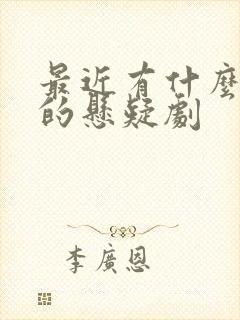 最近有什麼
的懸疑劇
李廣恩